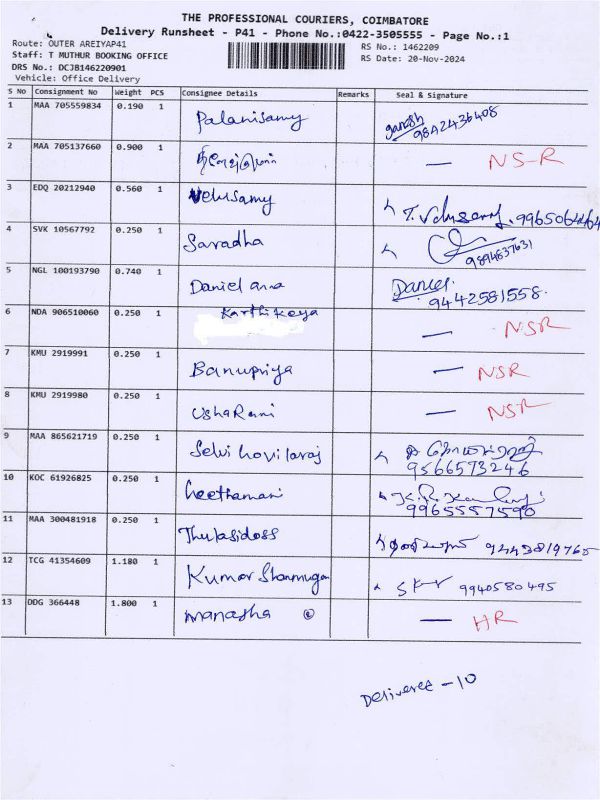 THE PROFESSIONAL COURIERS, COIMBATORE
Delivery Runsheet - P41 - Phone No.:0422-3505555 - Page No.:1
Route: OUTER AREIYAP41
Staff: T MUTHUR BOOKING OFFICE
DRS No.: DCJB146220901
Vehicle: Office Delivery
RS No.: 1462209
RS Date: 20-Nov-2024
S No Consignment No Weight PCS Consignee Details Remarks Seal & Signature
1 MAA 705559834 0.190 1 Palanisamy ganesh 9842436408
2 MAA 705137660 0.900 1 — NS-R
3 EDQ 20212940 0.560 1 Velusamy T. Velusamy.
4 SVK 10567792 0.250 1 Saradha 9894637631
5 NGL 100193790 0.740 1 Daniel ana Daniel. 9442581558.
6 NDA 906510060 0.250 1 Karthikeya — NSR
7 KMU 2919991 0.250 1 Banupriya — NSR
8 KMU 2919980 0.250 1 Usha Rani — NSR
9 MAA 865621719 0.250 1 Selvi kovilaraj 9566573246
10 KOC 61926825 0.250 1 Geethamani 9965557590
11 MAA 300481918 0.250 1 Thulasidoss
12 TCG 41354609 1.180 1 Kumar Shanmugam 9940580495
13 DDG 366448 1.800 1 manasha — HR
Deliveree - 10